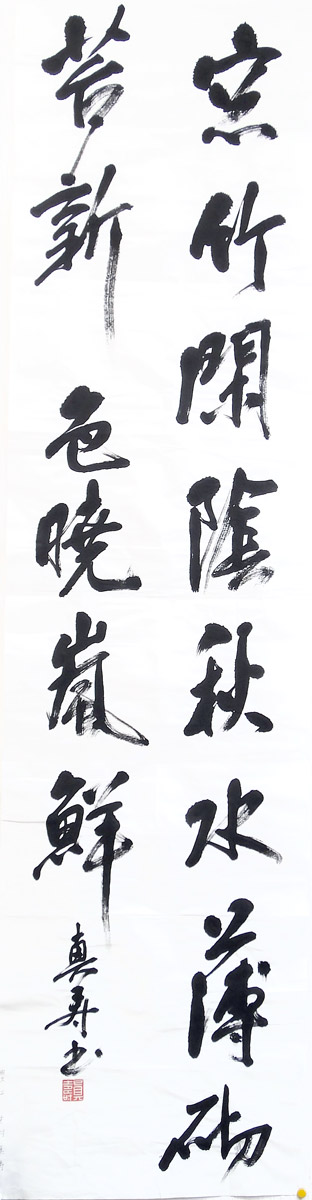 窓竹閑陰秋水薄砌
苔新色暁嵐鮮
真寿書